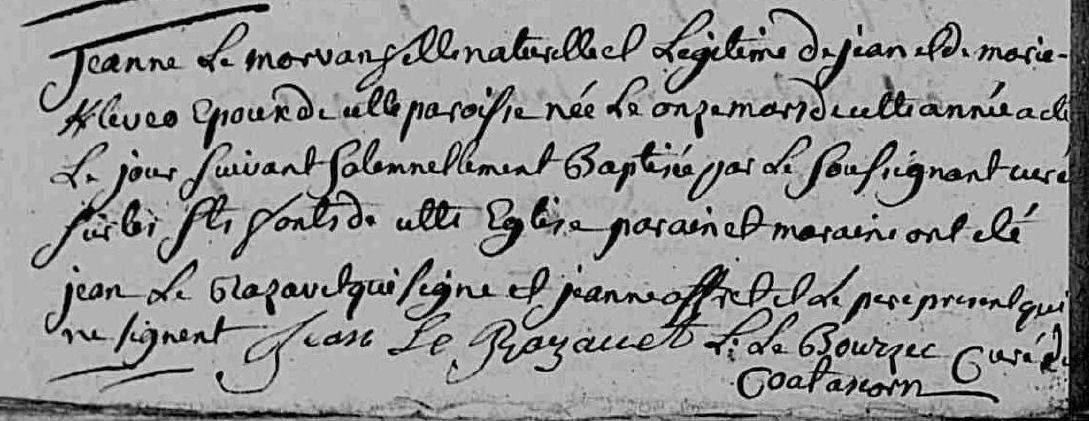 Jeanne Le morvan fille naturelle et Legitime de jean et de marie
Kleveo Epoux de cette paroisse née Le onze mars de cette année a eté
Le jour suivant solemnellement Baptisée par Le soussignant curé
sur les Sts fonts de cette Eglise parain et maraine ont eté
jean Le Razavet qui signe et jeanne offret et Le pere present qui
ne signent Jean Le Razavet L: Le Bourzec Curé de
Coatascorn